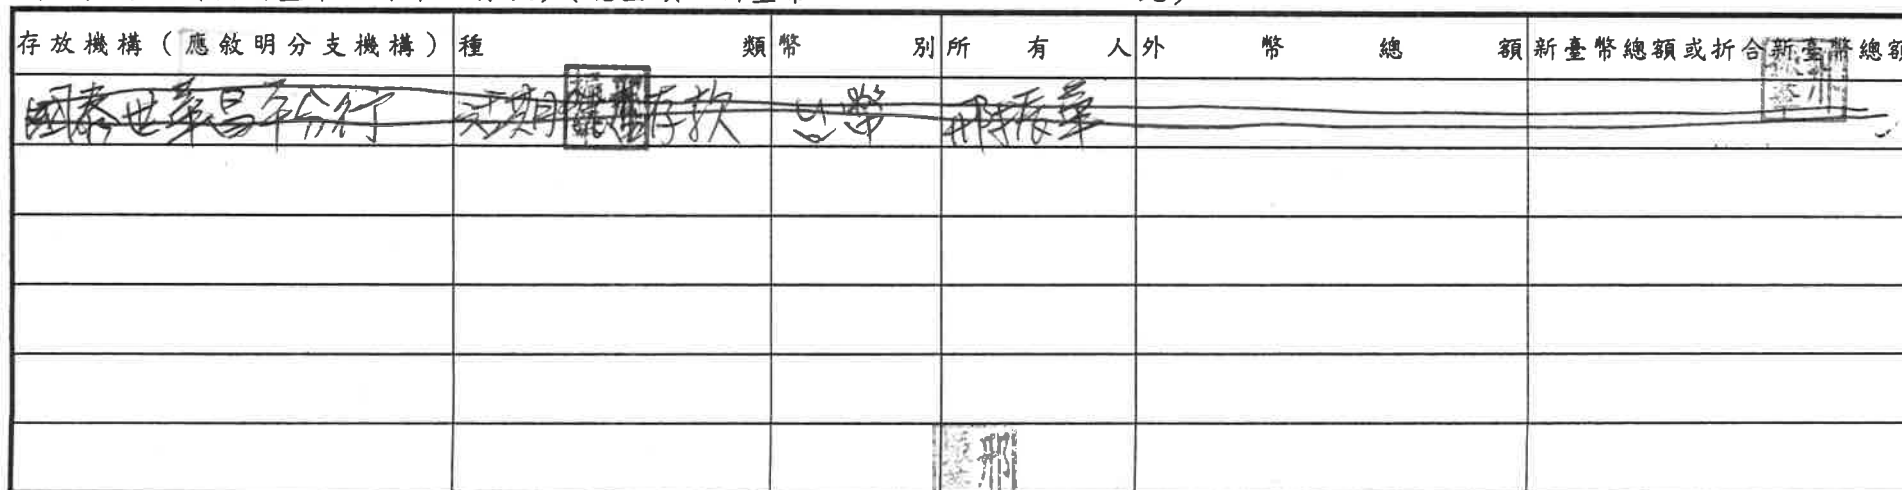 存放機構(應敘明分支機構) 種類 幣別 所有人 外幣總額 新臺幣總額或折合新臺幣總額
國泰世華昌平分行 活期 存款 台幣 邢振華
邢